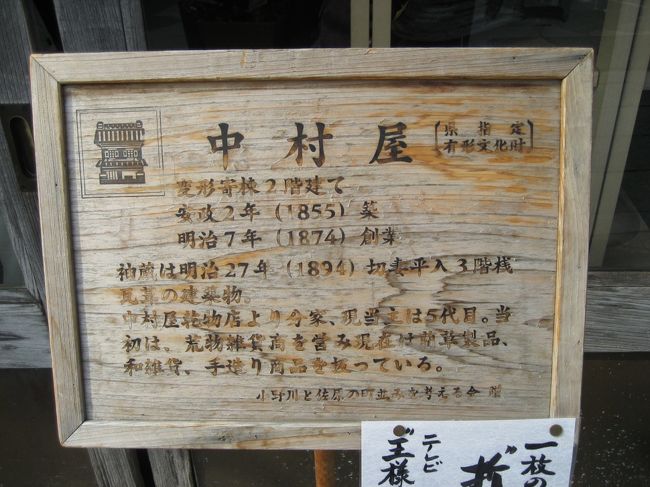 中村屋
県指定
有形文化財
変形寄棟2階建て
安政2年(1855)築
明治7年(1874)創業
袖蔵は明治27年(1894)切妻平入3階桟
瓦葺の建築物。
中村屋荒物店より分家、現当主は5代目。当
初は、荒物雑貨商を営み現在は竹草製品、
和雑貨、手造り商品を扱っている。
小野川と佐原の町並みを考える会 贈
一枚の
哲
テレビ
王様